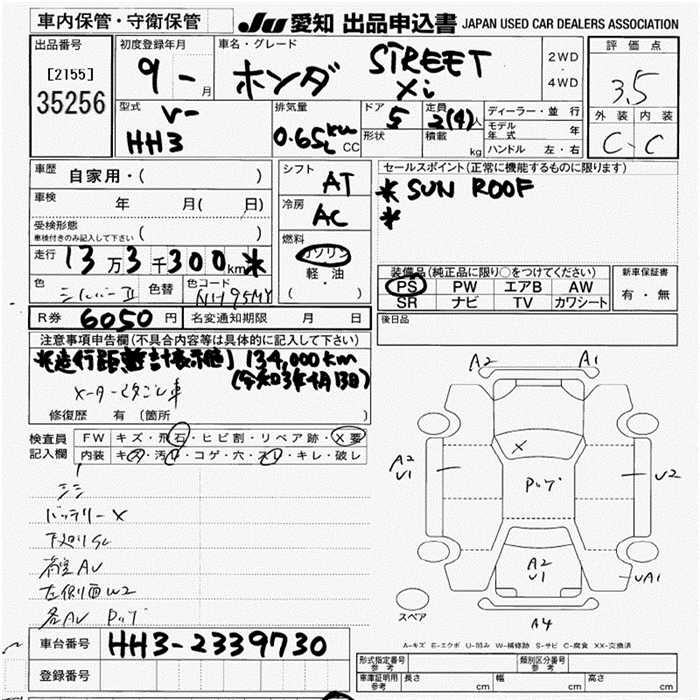 車内保管・守衛保管
JU 愛知 出品申込書 JAPAN USED CAR DEALERS ASSOCIATION
出品番号
[2155]
35256
初度登録年月
9 - 月
車名・グレード
ホンダ STREET
Xi
2WD
・
4WD
評価点
3.5
外装 内装
C - C
型式
V-
HH3
排気量
0.65 L CC
ドア
5
形状
定員
2(4)人
積載
kg
ディーラー・並行
モデル年式 年
ハンドル 左・右
車歴
自家用・( )
車検
年 月( 日)
受検形態
車検付きのみ記入して下さい ( )
走行
13万3千300km*
色
シルバーII
色替
色コード
NH95MY
シフト
AT
冷房
AC
燃料
ガソリン
・
軽・油
( )
セールスポイント(正常に機能するものに限ります)
* SUN ROOF
*
装備品(純正品に限り○をつけてください)
PS PW エアB AW
SR ナビ TV カワシート
新車保証書
有・無
後日品
R券 6050円
名変通知期限 月 日
注意事項申告欄(不具合内容等は具体的に記入して下さい)
*走行距離計表示値) 134,000km
(令和03年4月13日)
メーター
修復歴 有 〔箇所 〕
検査員
記入欄
FW キズ・飛石・ヒビ割・リペア跡・X要
内装 キズ・汚れ・コゲ・穴・スレ・キレ・破レ
バッテリーX
下廻りSC
AV
左側面W2
各AV
車台番号 HH3-2339730
登録番号
A2 A1
X
A2
V1
U2
A2
V1
UA1
A4
スペア
A-キズ E-エクボ U-凹み W-補修跡 S-サビ C-腐食 XX-交換済
形式指定番号
参考
類別区分番号
参考
車庫証明用
参考
長さ cm 幅 cm 高さ cm